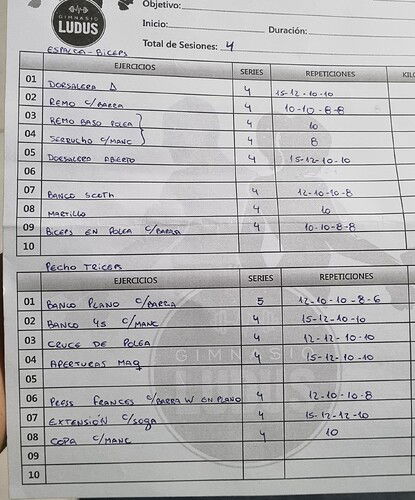 GIMNASIO
LUDUS
Objetivo:
Inicio: Duración:
Total de Sesiones: 4
ESPALDA - BICEPS
EJERCICIOS SERIES REPETICIONES KIL
01 DORSALERA Δ 4 15-12-10-10
02 REMO C/BARRA 4 10-10-8-8
03 REMO BAJO POLEA 4 10
04 SERRUCHO C/MANC 4 8
05 DORSALERA ABIERTO 4 15-12-10-10
06
07 BANCO SCOTH 4 12-10-10-8
08 MARTILLO 4 10
09 BICEPS EN POLEA C/BARRA 4 10-10-8-8
10
PECHO TRICEPS
EJERCICIOS SERIES REPETICIONES
01 BANCO PLANO C/BARRA 5 12-10-10-8-6
02 BANCO 45 C/MANC 4 15-12-10-10
03 CRUCE DE POLEA 4 12-12-10-10
04 APERTURAS MAQ 4 15-12-10-10
05
06 PRESS FRANCES C/BARRA W EN PLANO 4 12-10-10-8
07 EXTENSIÓN C/SOGA 4 15-12-12-10
08 COPA C/MANC 4 10
09
10
GIMNASIO
LUDUS